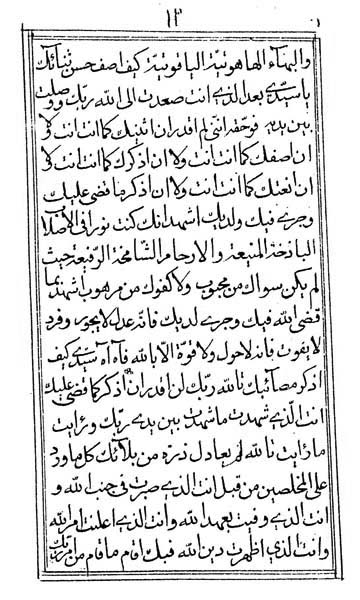 ١٣
والبهآء الهاهوتية الياقوتية كيف اصف حسن ثنائك
يا سيدى بعد الذى انت صعدت الى الله ربك ووصلت
بين يديه فوحقه اننى لم اقدر ان اثنيك كما انت انت ولا
ان اصفك كما انت انت ولا ان اذكرك كما انت انت ولا
ان انعتك كما انت انت ولا ان اذكر ما قضى عليك
وجرى فيك ولديك اشهد انك كنت نورا فى الاصلاب
الباذخة المنيعة والارحام الشامخة الرفيعة حيث
لم يكن سواك من محبوب ولا كفوك من مرهوب اشهد بما
قضى الله فيك وجرى لديك فانه عدل لا يجور وفرد
لا يفوت فانه لا حول ولا قوة الا بالله فآه آه سيدى كيف
اذكر مصآئبك تالله ربك لن اقدر ان اذكر كما قضى عليك
انت الذى شهدت ما شهدت بين يدى ربك ورايت
ما رايت تالله لم يعادل ذرة من بلآئك كل ما ورد
على المخلصين من قبل انت الذى صبرت فى جنب الله و
انت الذى وفيت بعهد الله وانت الذى اعلنت امر الله
وانت الذى اظهرت دين الله فبك اقام ما قام من امر ربك